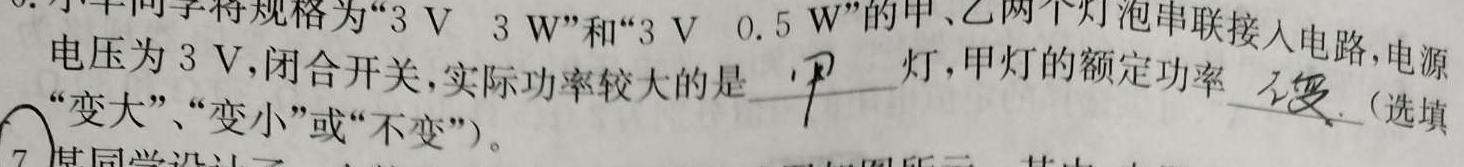 同学将规格为“3 V 3 W”和“3 V 0.5 W”的甲、乙两个灯泡串联接入电路,电源
电压为 3 V,闭合开关,实际功率较大的是 甲 灯,甲灯的额定功率 不变.(选填
“变大”、“变小”或“不变”)。
7 某同学设计了